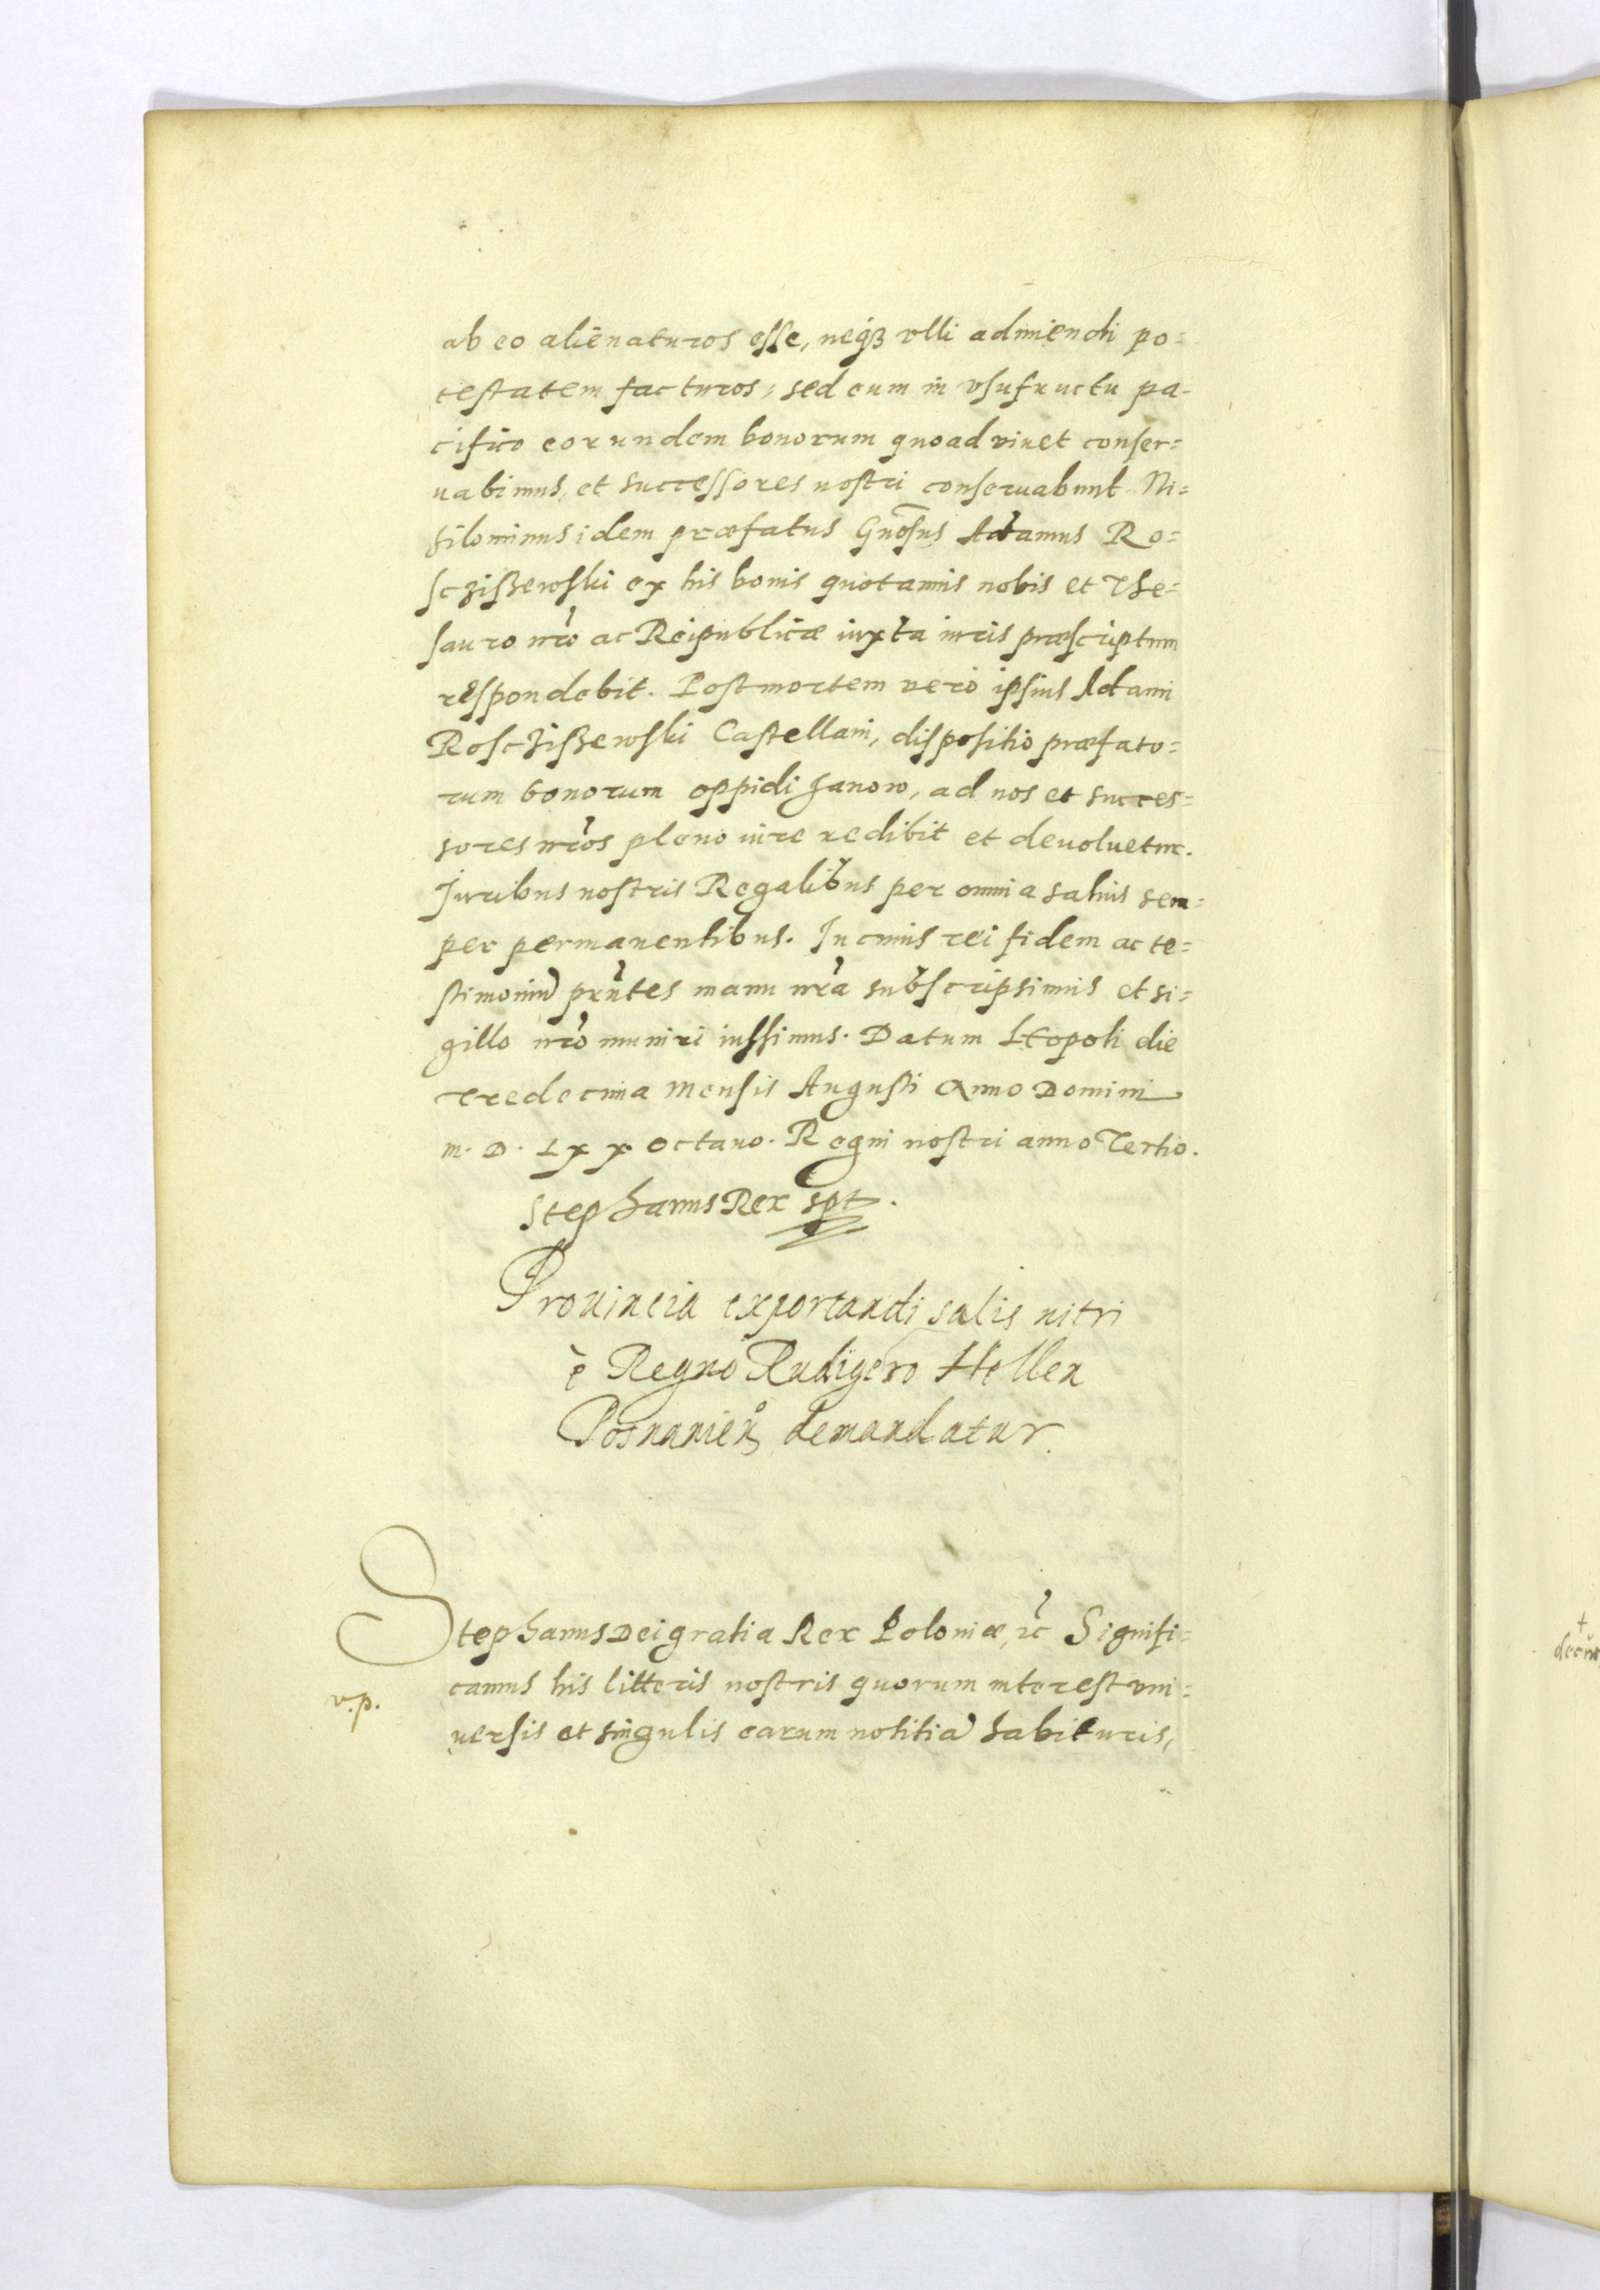 ab eo alienaturos esse, neqꝫ vlli adimendi po=
testatem facturos, sed eum in vsufructu pa-
cifico eorundem bonorum quoad viuet conser=
uabimus, et successores nostri conseruabunt. Ni=
hilominus idem præfatus Gnosus Adamus Ro=
sczißewski ex his bonis quotannis nobis et The=
sauro nro ac Reipublicæ iuxta iuris præscriptum
respondebit. Post mortem vero ipsius Adami
Rosczißewski Castellani, dispositio præfato=
rum bonorum oppidi Janow, ad nos et succes=
sores nros pleno iure redibit et deuoluetur.
Juribus nostris Regalibus per omnia saluis sem=
per permanentibus. In cuius rei fidem ac te=
stimoniu prntes manu nra subscripsimus et si=
gillo nro muniri iussimus. Datum Leopoli die
tredecima mensis Augusti Anno Domini
M. D. Lxx octauo. Regni nostri anno Tertio.
Stephanus Rex spt.
Prouincia exportandi salis nitri
è Regno Rudigero Hellen
Posnanien demandatur.
Stephanus Dei gratia Rex Poloniæ, rc Signifi=
camus his litteris nostris quorum interest vni=
v.p.
uersis et singulis earum notitia habituris,